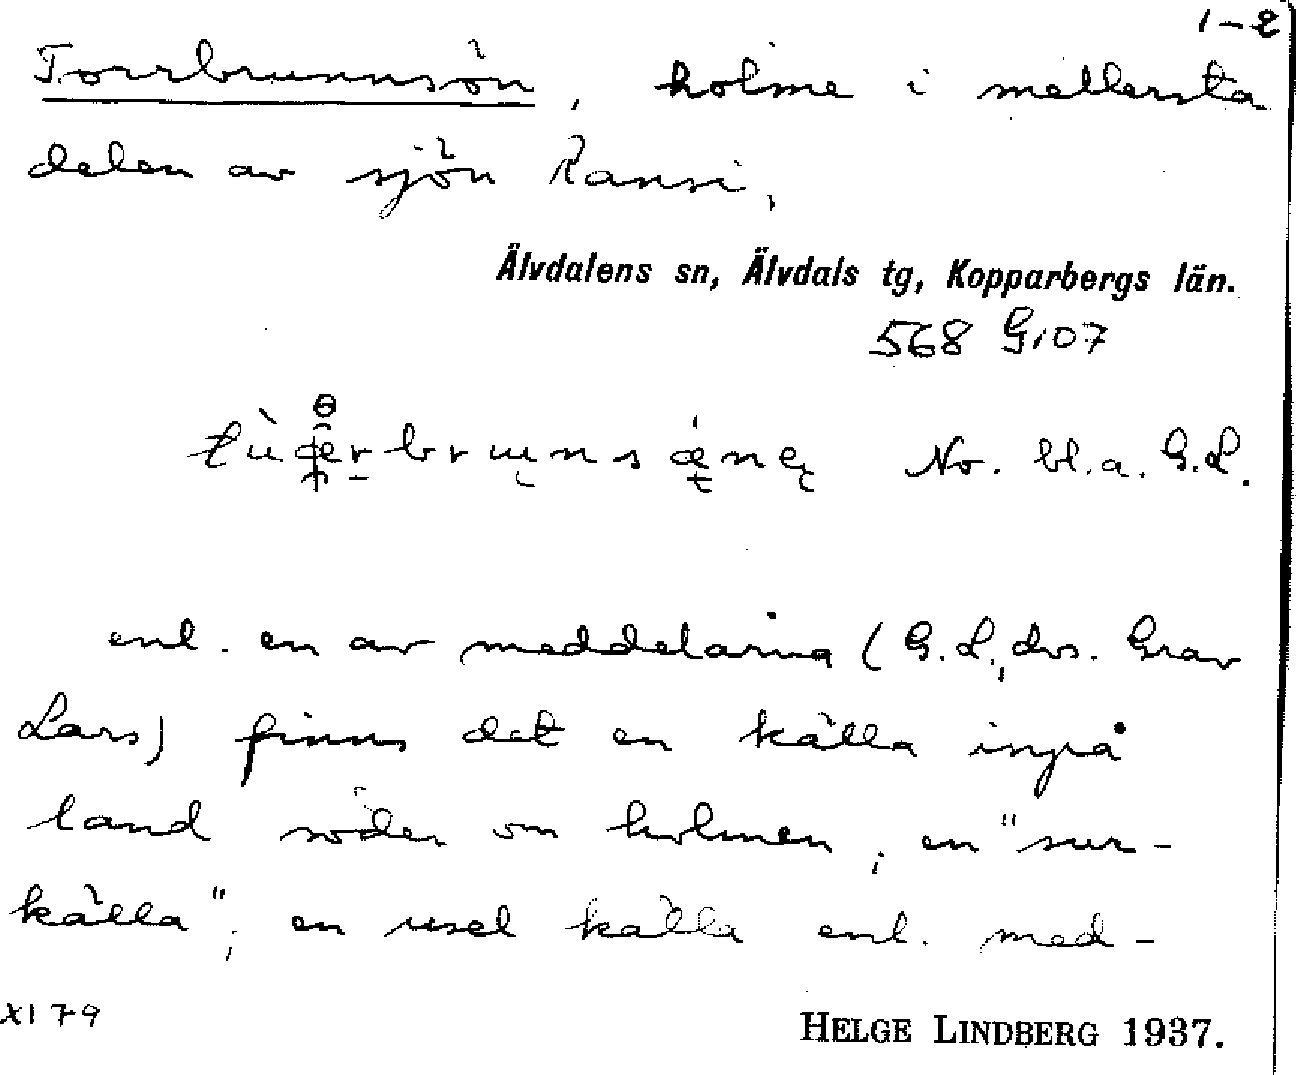 1-2
Torrbrunnsön, holme i mellersta
delen av sjön Ransi,
Älvdalens sn, Älvdals tg, Kopparbergs län.
568 G:07
No. bl.a. G.L.
enl. en av meddelarna (G.L., dvs. Grav
Lars) finns det en källa inpå
land söder om holmen, en "sur-
källa", en usel källa enl. med-
XI 79
HELGE LINDBERG 1937.